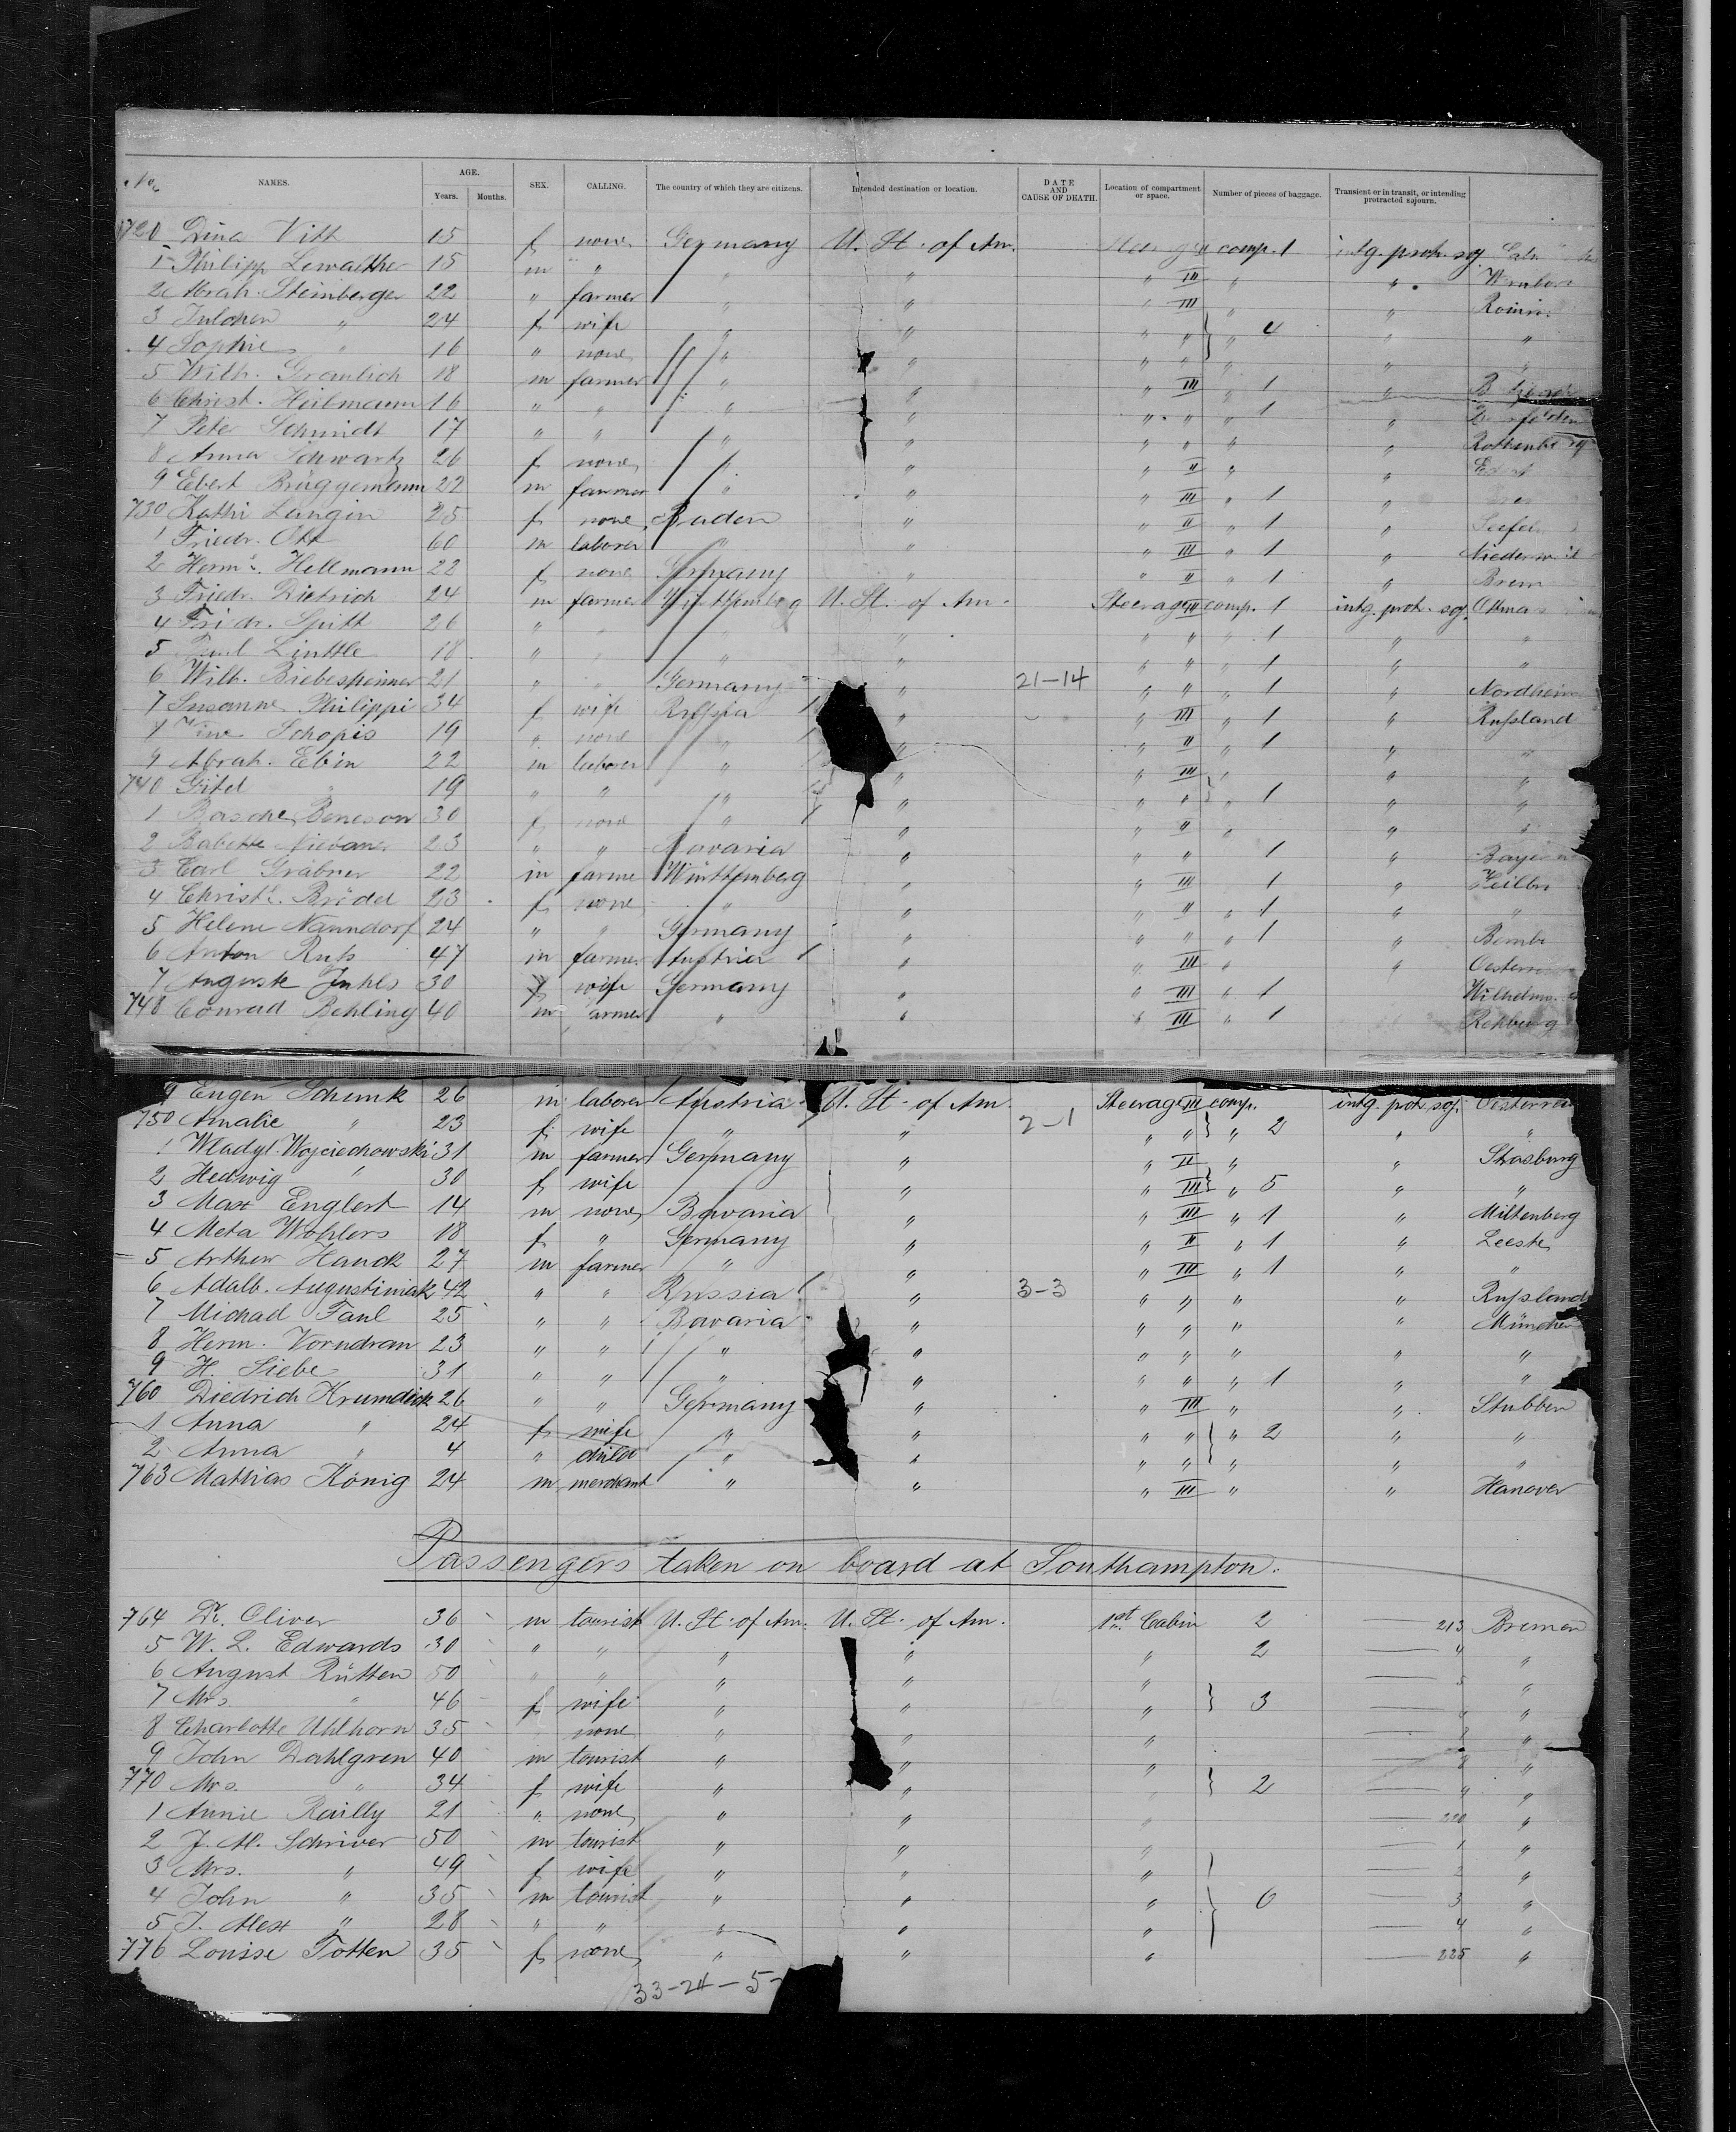 No. NAMES. AGE. Years. Months. SEX. CALLING. The country of which they are citizens. Intended destination or location. DATE AND CAUSE OF DEATH. Location of compartment or space. Number of pieces of baggage. Transient or in transit, or intending protracted sojourn.
720 Dina Vitt 15 f none Germany U. St. of Am. comp. 1 intg. proh. soj.
1 Philipp Lewalther 15 m " " " " III " "
2 Abrah. Steinberger 22 " farmer " " " III " "
3 Julchen " 24 f wife " " " " } " 4 " "
4 Sophie " 16 " none " " " " " " "
5 Wilh. Gramlich 18 m farmer " " " III " 1 "
6 Christ. Heilmann 16 " " " " " " " 1 "
7 Peter Schmidt 17 " " " " " " " "
8 Anna Schwartz 26 f none " " " II " "
9 Ebert Brüggemann 22 m farmer " " " III " 1 "
730 Kathi Langin 25 f none Baden " " II " 1 "
1 Friedr. Ott 60 m laborer " " " III " 1 "
2 Herme. Hellmann 22 f none Germany " " II " 1 " Brem
3 Friedr. Dietrich 24 m farmer Württemberg U. St. of Am. Steerage III comp. 1 intg. proh. soj.
4 Friedr. Spitt 26 " " " " " " " 1 " "
5 Paul Linttle 18 " " " " " " " 1 " "
6 Wilh. Biebesheimer 21 " " Germany " 21-14 " " " 1 " Nordheim
7 Susanne Philippi 34 f wife Russia " " III " 1 " Rußland
Schopis 19 " none " " " II " 1 " "
9 Abrah. Ebin 22 m laborer " " " III " " "
740 Gitel " 19 " " " " " " } " 1 " "
1 Basche Beneson 30 f none " " " " " " "
2 Babette 23 " " Bavaria " " " 1 " Bayern
3 Carl Gräbner 22 m farmer Württemberg " " III 1 "
4 Christe. Brödel 23 f none " " " II " 1 " "
5 Helene Nanndorf 24 " " Germany " " " " 1 "
6 Anton Ruß 47 m farmer Austria " " III " "
7 August Juhls 30 f wife Germany " " III " 1
748 Conrad Rehling 40 m farmer " " " III " 1 Rehburg
9 Eugen Schenk 26 m laborer Austria U. St. of Am. Steerage III comp. intg. prot. soj.
750 Amalie " 23 f wife " " 2-1 " " } " 2 " "
1 Wladyl. Wojciechowski 31 m farmer Germany " " II " " Strasburg
2 Hedwig " 30 f wife " " III } " 5 " "
3 Max Englert 14 m none Bavaria " " III " 1 " Miltenberg
4 Meta Wohlers 18 f " Germany " " II " 1 " Leeste
5 Arthur Hauck 27 m farmer " " " III " 1 " "
6 Adalb. Augustiniak 42 " " Russia " 3-3 " " " " Rußland
7 Michael Faul 25 " " Bavaria " " " " " München
8 Herm. Vorndran 23 " " " " " " " " "
9 H. Siebe 31 " " " " " " " 1 " "
760 Diedrich Krumdick 26 " " Germany " " III " " Stubben
1 Anna " 24 f wife " " " " } " 2 " "
2 Anna " 4 " child " " " " " " "
763 Mathias König 24 m merchant " " " III " " Hanover
Passengers taken on board at Southampton.
764 Dr. Oliver 36 m tourist U. St. of Am. U. St. of Am. 1st Cabin 2 213 Bremen
5 W. L. Edwards 30 " " " " " 2 4 "
6 August Rütten 50 " " " " " 5 "
7 Mrs. " 46 f wife " " " } 3 "
8 Charlotte Uhlhorn 35 none " " " "
9 John Dahlgren 40 m tourist " " " 8 "
770 Mrs. " 34 f wife " " } 2 9 "
1 Annie Railly 21 " none " " " 220 "
2 J. M. Schriver 50 m tourist " " " 1 "
3 Mrs. " 49 f wife " " " 2 "
4 John " 35 m tourist " " " } 6 3 "
5 J. Alex " 28 " " " " " 4 "
776 Louise Totten 35 f none " " " 225 "
33-24-5-